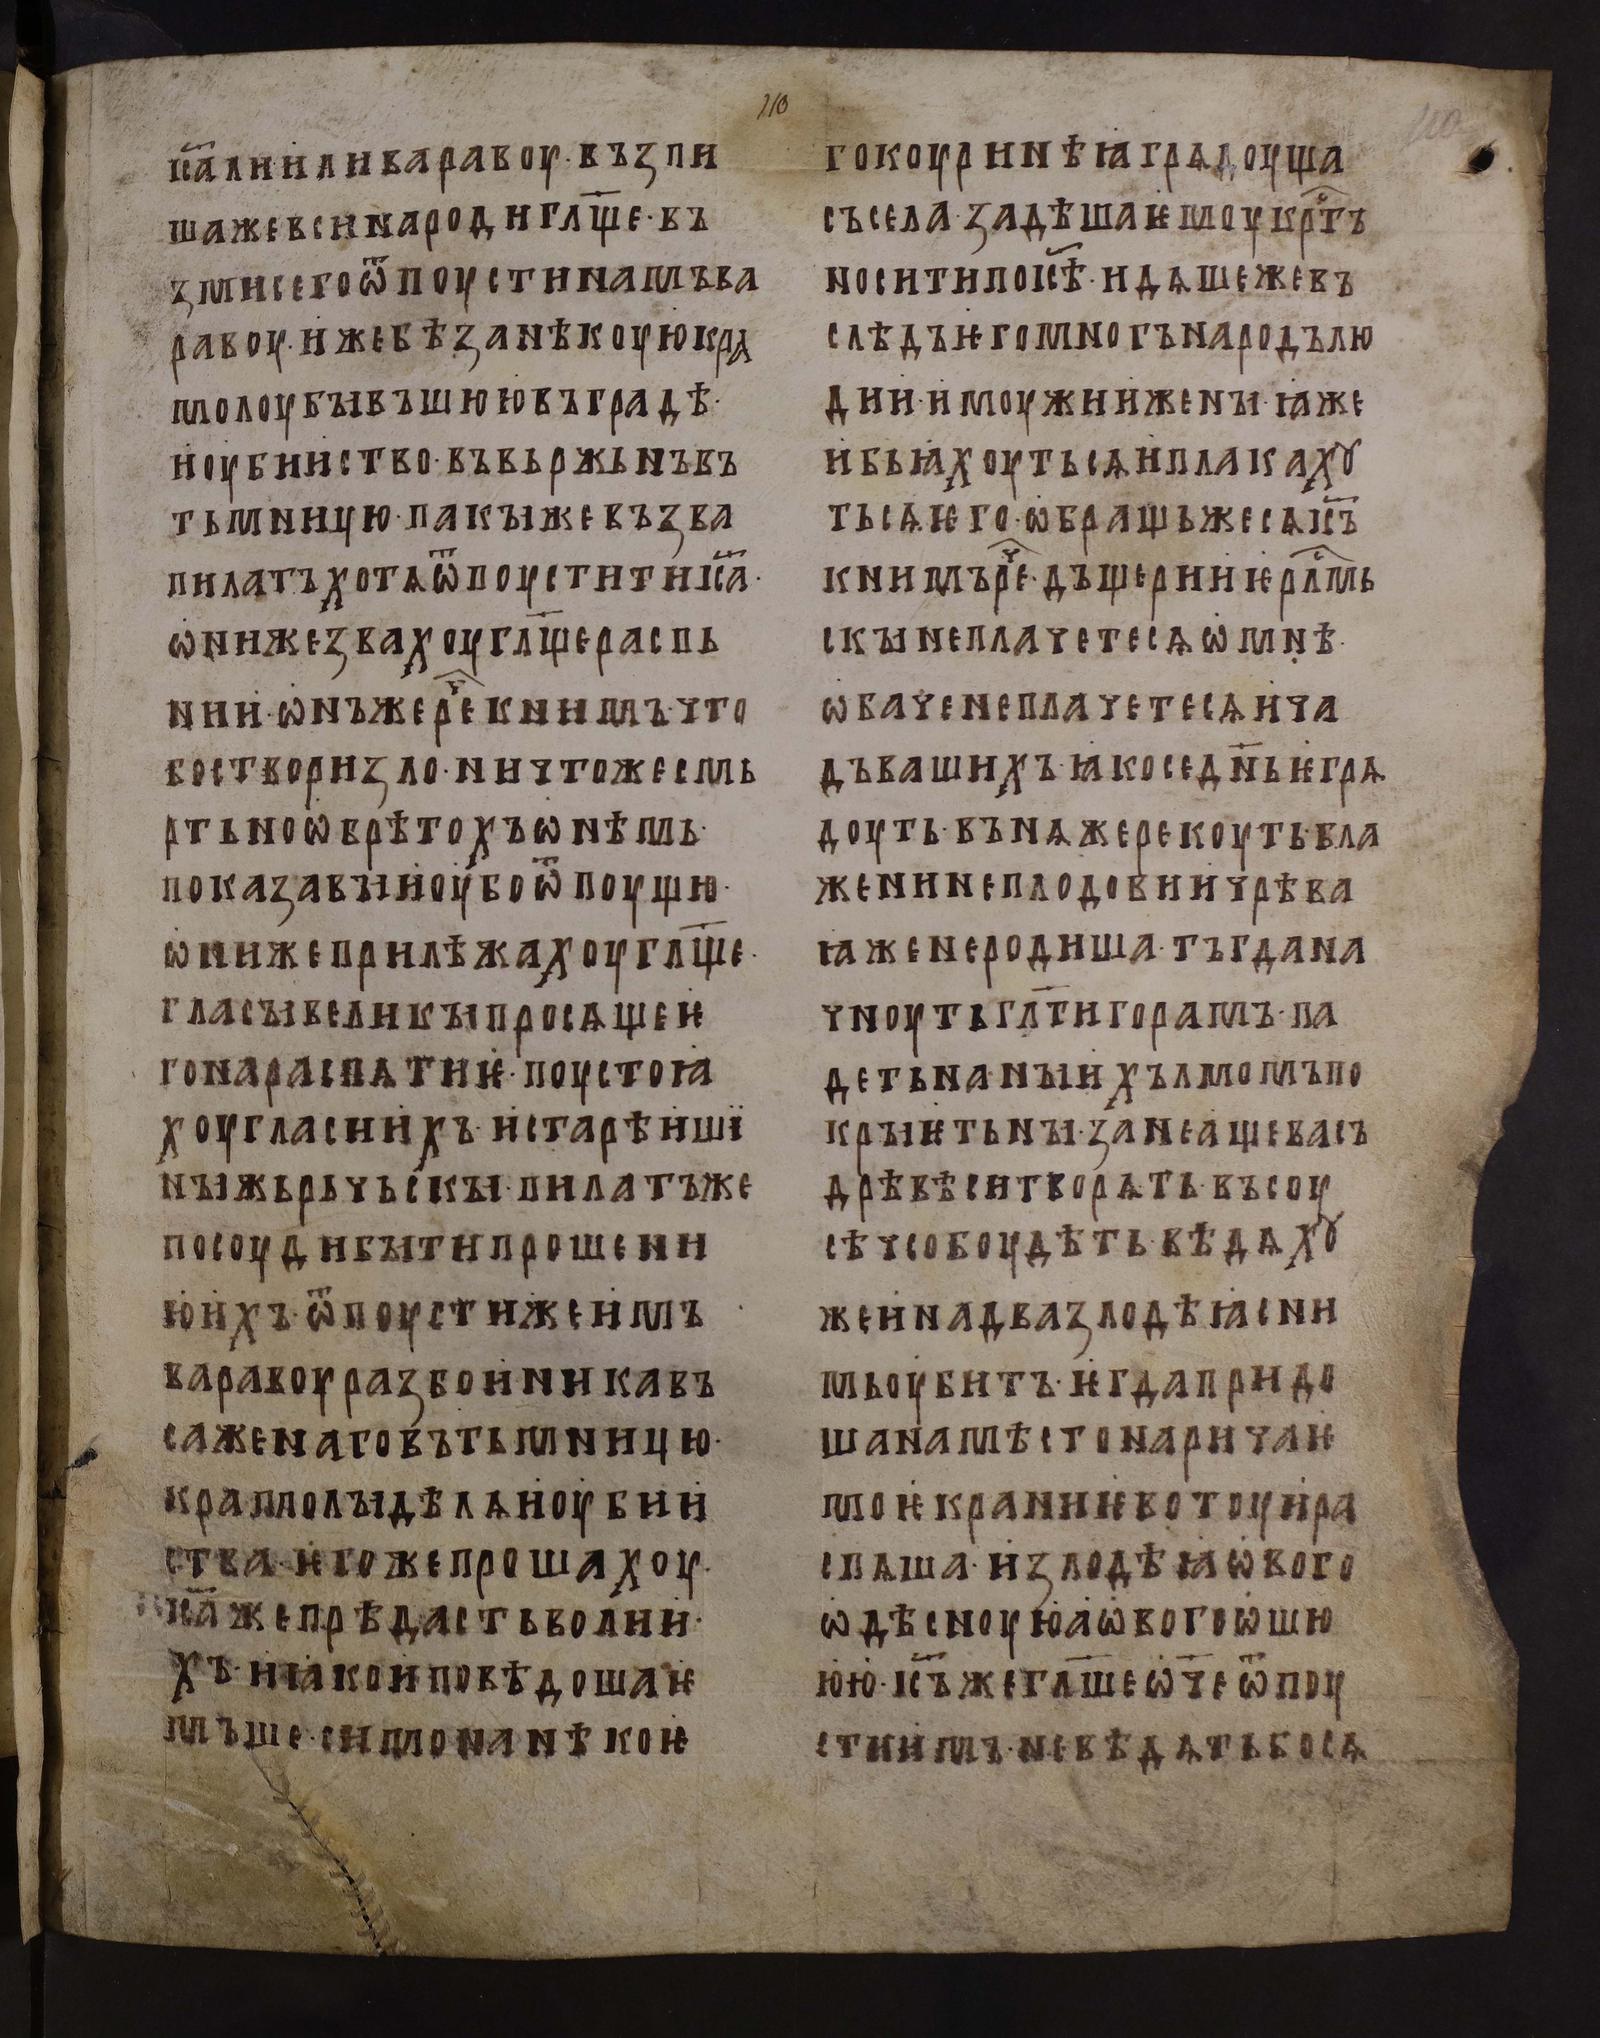 110
іс҃а ли или вараву· възпи
шаже вси народи гл҃ще· въ
зми сего ѿпоусти намъ ва
равоу· иже бѣ за нѣкоую кра
молоу бывъшюю въ градѣ·
и оубииство· въвьржьнъ въ
тьмницю· пакыже възва
пилатъ хотѧ ѿпоустити іс҃а·
ѡниже звахоу гл҃ще распь
нии· ѡнъже рече к нимъ· что
бо створи зло· ничтоже съмь
ртьно ѡбрѣтохъ ѡ нѣмь·
показавыи оубо ѿпоущю·
ѡниже прилѣжахоу гл҃ще·
гласы великы просѧще ѥ
го на распѧтиѥ· поустоꙗ
хоу гласи ихъ· и старѣишї
ны жьрьчьскы· пилатъже
посоуди быти прошени
ю ихъ· ѿпоустиже имъ
варавоу разбоиника въ
саженаго въ тьмницю·
крамолы дѣлѧ и оубии
ства· ѥгоже прошахоу·
іс҃аже прѣдасть воли и
хъ· и ꙗко и поведоша ѥ
мъше симона нѣкоѥ
го коуринѣꙗ градоуща
съ села· задѣша ѥмоу крс҃тъ
носити по іс҃ѣ· идѧшеже въ
слѣдъ ѥго многъ народъ лю
дии· и моужи и жены· ꙗже
и бьꙗхоутьсѧ и плакахꙋ
тьсѧ ѥго· ѡбращьжесѧ іс҃ъ
к нимъ рече· дъщери иѥрслмь
скы не плачетесѧ ѡ мнѣ·
ѡбаче не плачетесѧ и ча
дъ вашихъ· ꙗко се дн҃ьѥ грѧ
доуть· въ нѧже рекоуть· бла
жени неплодови и чрѣва
ꙗже не родиша· тъгда на
чноуть гл҃ти горамъ· па
деть на ны и хълмомъ по
крыѥть ны· зане аще въ съ
дрѣвѣ си творѧть· въ соу
сѣ чсо боудѣть· вѣдѧхꙋ
же и на два злодѣꙗ с ни
мь оубитъ· ѥгда придо
ша на мѣсто наричаѥ
моѥ краниѥво тоу и ра
спѧша· и злодѣꙗ ѡвого
ѡ дѣсноую а ѡвого ѡ шю
юю· іс҃ъже гл҃ше ѡч҃е ѿпоу
сти имъ· не вѣдѧть бо сѧ